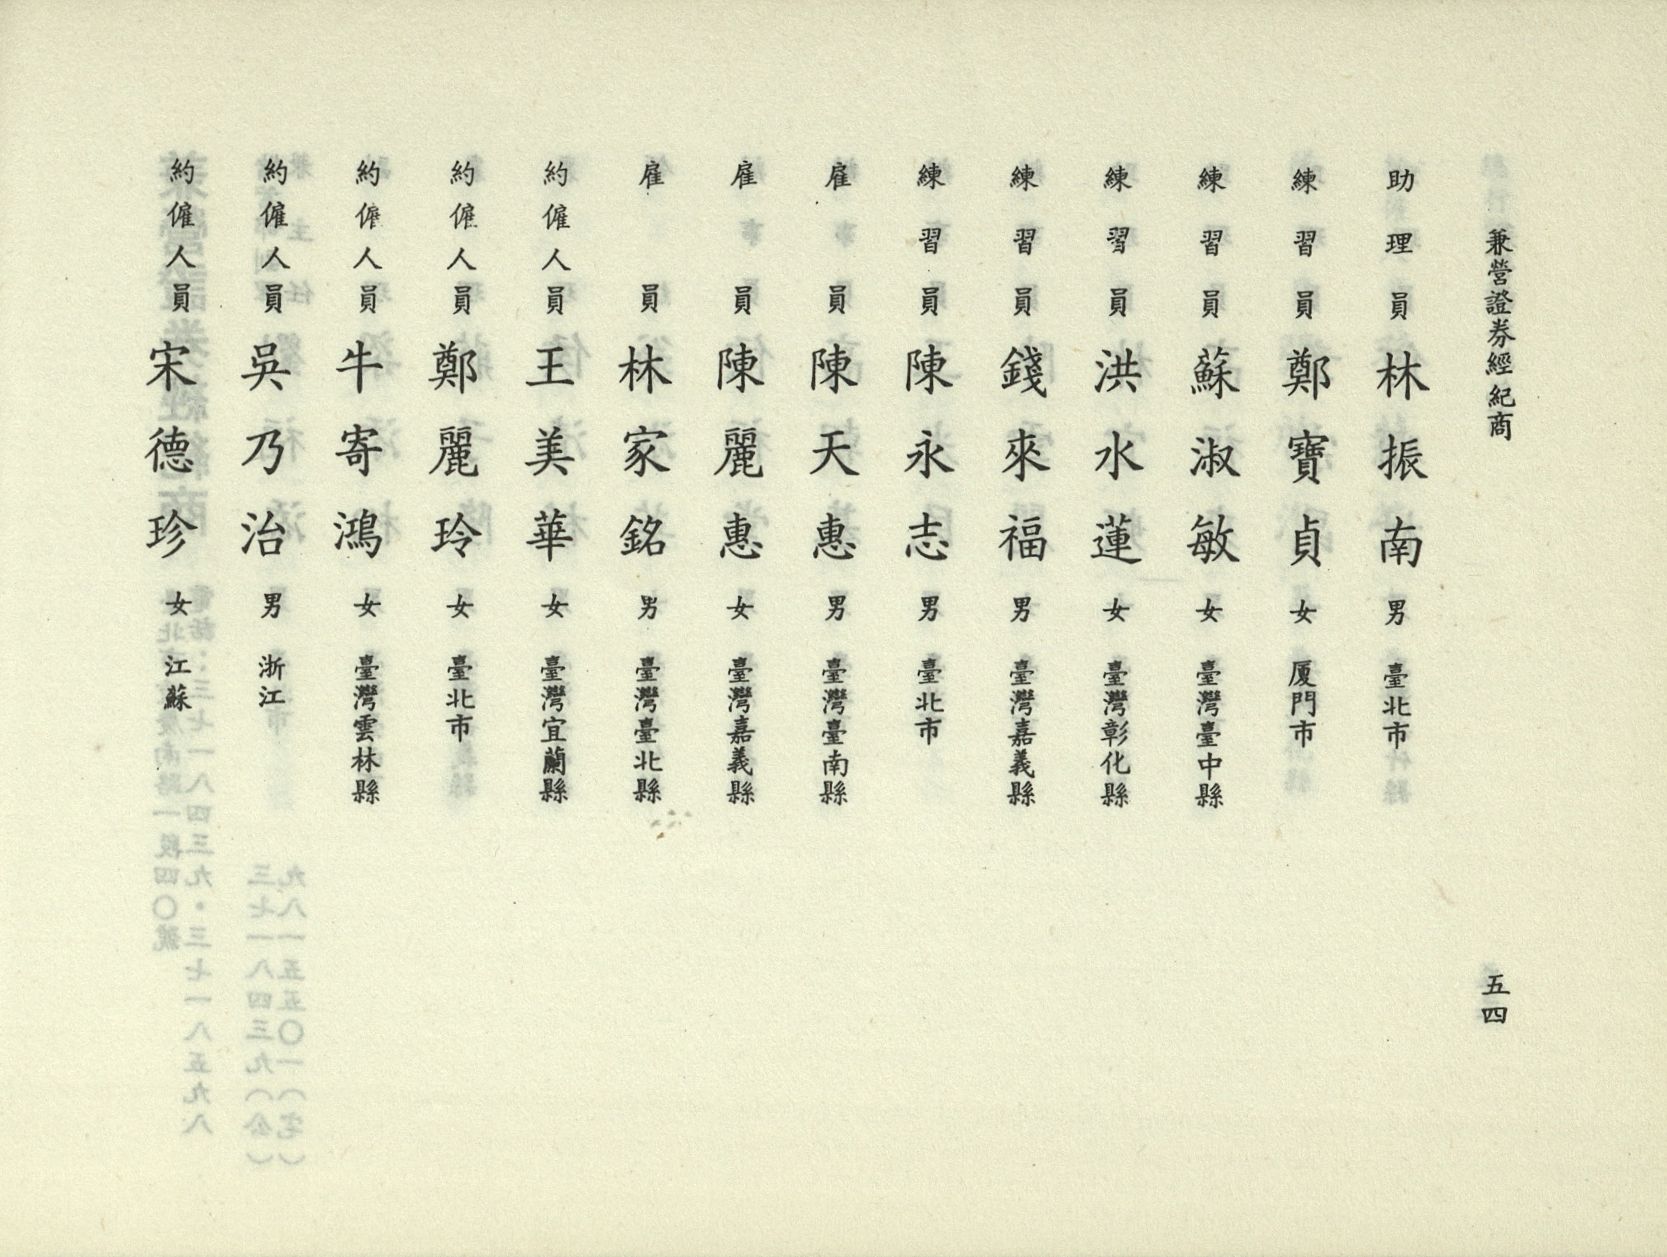 兼營證券經紀商
五四
助理員 林振南 男 臺北市
練習員 鄭寶貞 女 厦門市
練習員 蘇淑敏 女 臺灣臺中縣
練習員 洪水蓮 女 臺灣彰化縣
練習員 錢來福 男 臺灣嘉義縣
練習員 陳永志 男 臺北市
雇員 陳天惠 男 臺灣臺南縣
雇員 陳麗惠 女 臺灣嘉義縣
雇員 林家銘 男 臺灣臺北縣
約僱人員 王美華 女 臺灣宜蘭縣
約僱人員 鄭麗玲 女 臺北市
約僱人員 牛寄鴻 女 臺灣雲林縣
約僱人員 吳乃治 男 浙江
約僱人員 宋德珍 女 江蘇